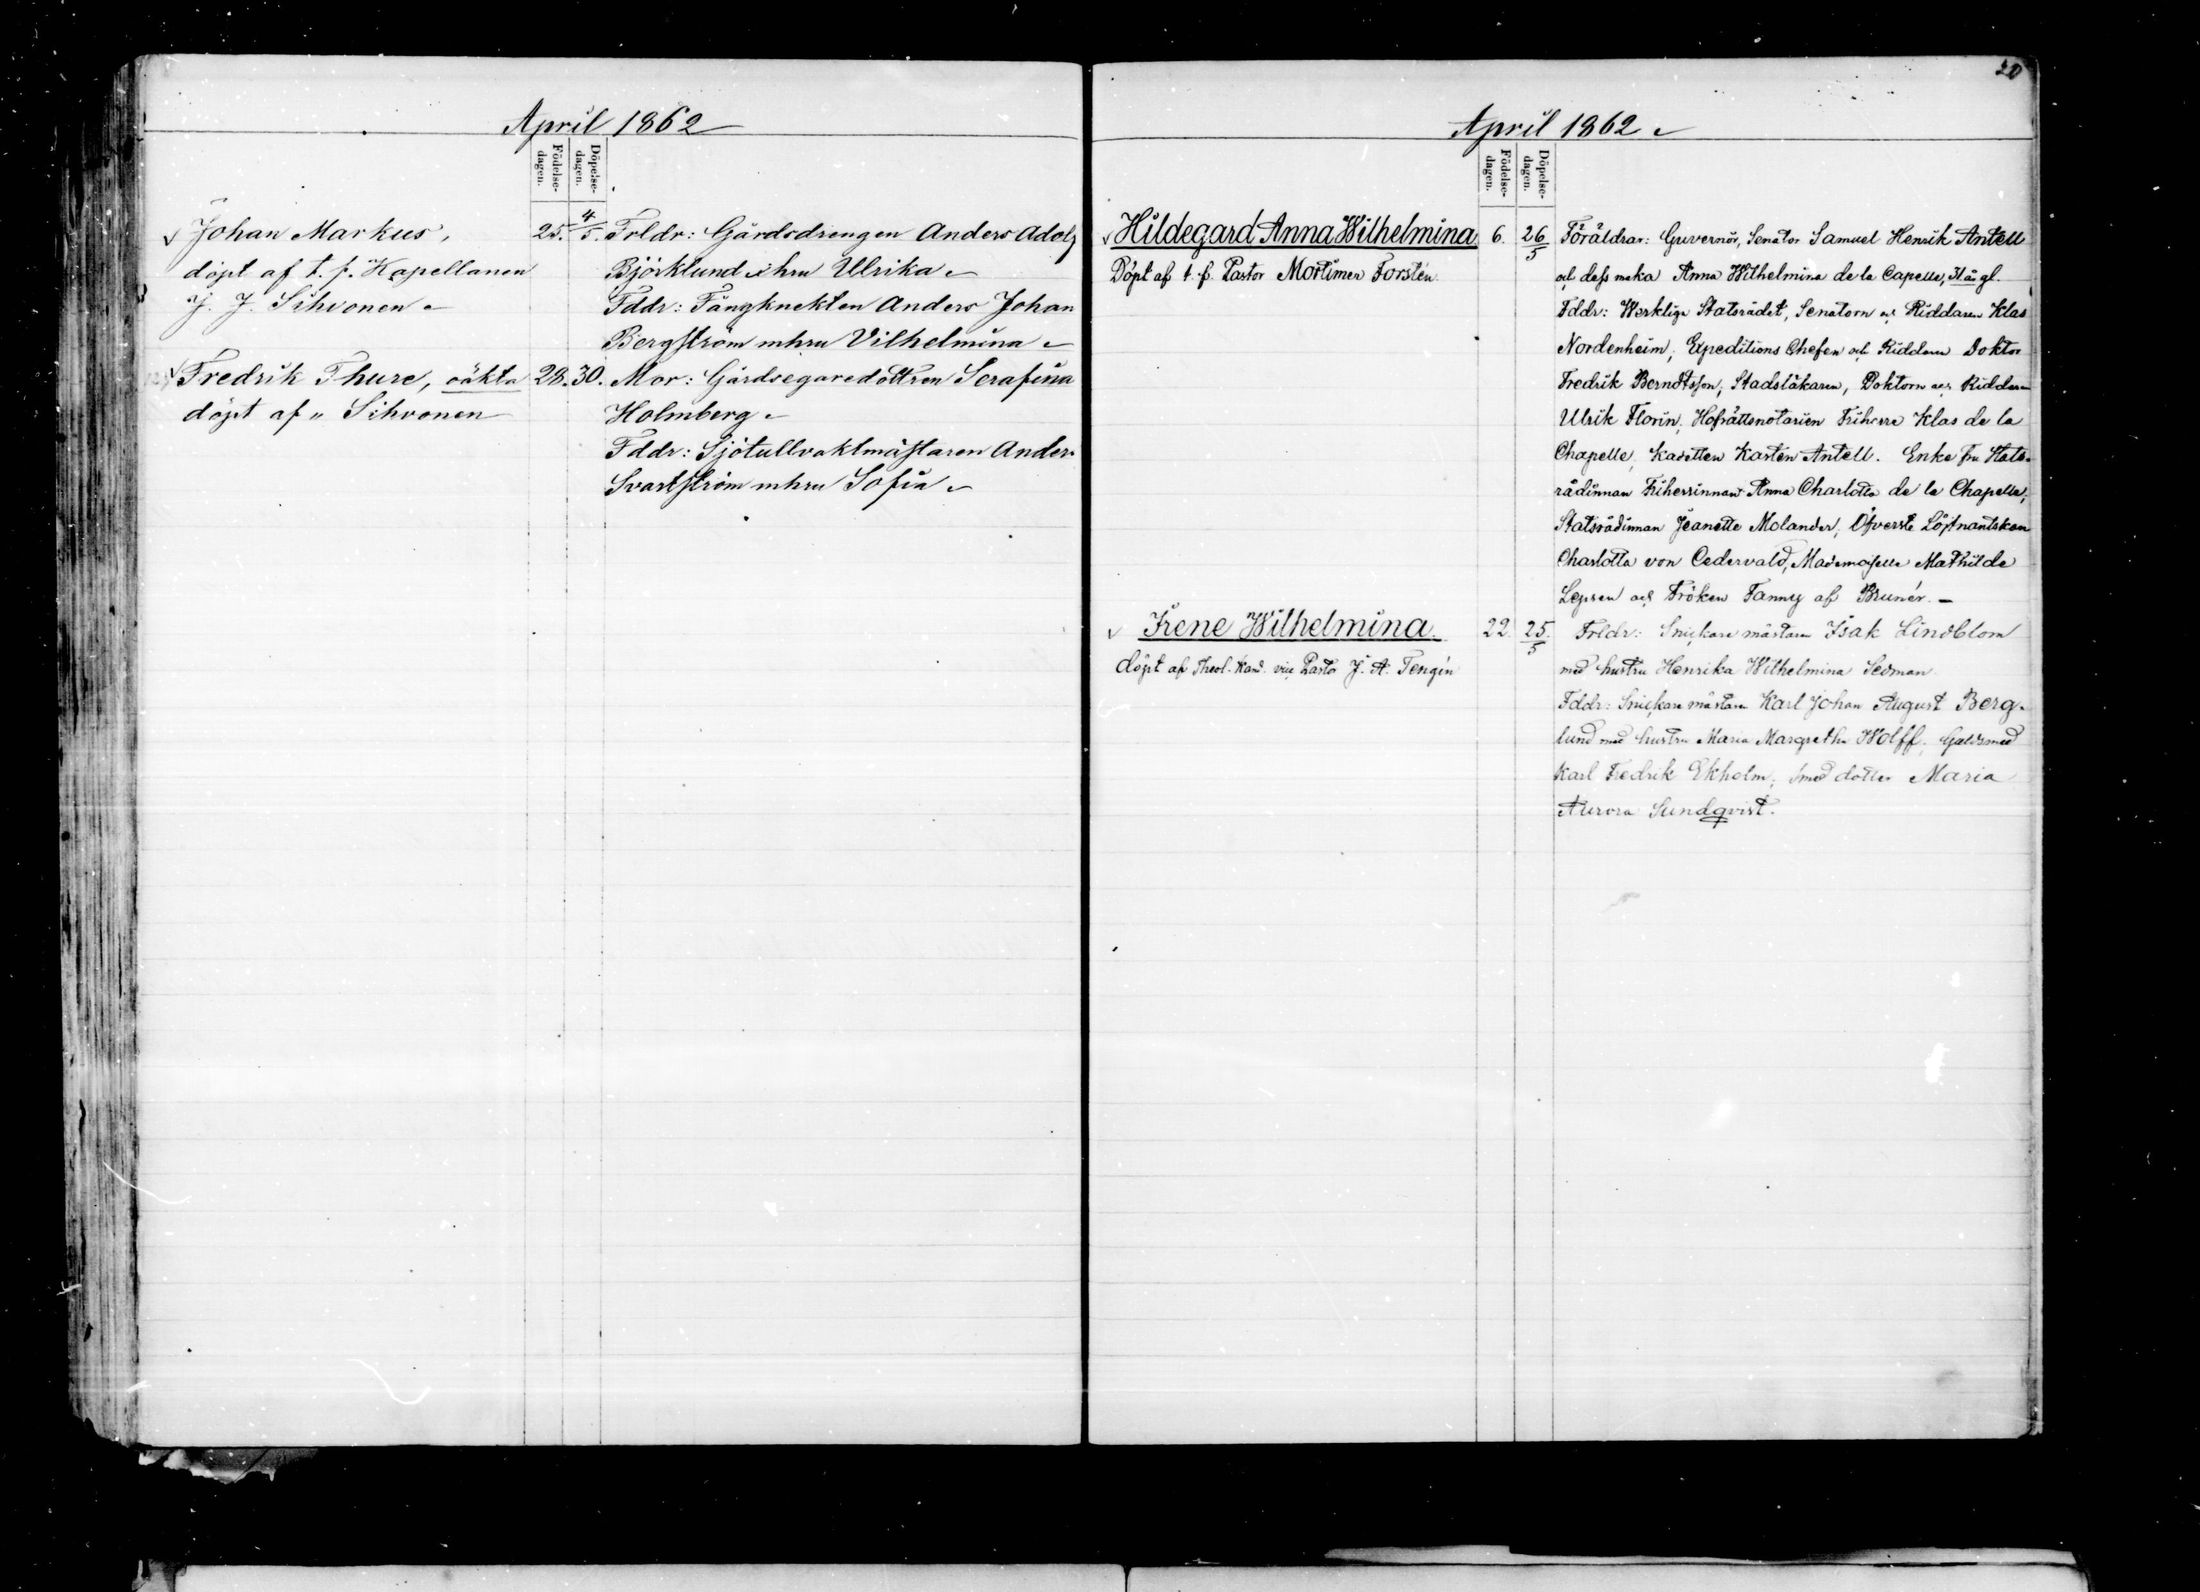 April 1862
Födelse-
dagen.
Döpelse-
dagen.
Johan Markus,
döpt af t. f. Kapellanen
J. J. Sihvonen
25.
4/5.
Frldr: Gårdsdrengen Anders Adolf
Björklund o hru Ulrika
Fddr: Fångknekten Anders Johan
Bergström mhru Vilhelmina
Fredrik Thure, oäkta
döpt af „ Sihvonen
28.
30.
Mor: Gårdsegaredottren Serafina
Holmberg
Fddr: Sjötullvaktmästaren Anders
Svartström mhru Sofia
20
April 1862
Födelse-
dagen.
Döpelse-
dagen.
Hildegard Anna Wilhelmina
Döpt af t. f. Pastor Mortimer Forstén
6.
26/5
Föräldrar: Guvernör, Senator Samuel Henrik Antell
och dess maka Anna Wilhelmina de la Capelle, 31 år gl.
Fddr: Werklige Statsrådet, Senatorn och Riddaren Klas
Nordenheim, Expeditions Chefen och Riddaren Doktor
Fredrik Berndtsson, Stadsläkaren, Doktorn och Riddaren
Ulrik Florin, Hofrättsnotarien Friherre Klas de la
Chapelle, Kadetten Karsten Antell. Enke fru Stats-
rådinnan Friherrinnan Anna Charlotta de la Chapelle,
Statsrådinnan Jeanette Molander, Öfverste Löjtnantskan
Charlotta von Cedervald, Mademoiselle Mathilde
Lepsen och Fröken Fanny af Brunér. —
Irene Wilhelmina.
döpt af Theol. Kand. vice Pastor J. A. Tengén
22.
25./5
Frldr: Snickare mästaren Isak Lindblom
med hustru Henrika Wilhelmina Sedman
Fddr: Snickare mästaren Karl Johan August Berg-
lund med hustru Maria Margretha Wolff, Guldsmed
Karl Fredrik Ekholm, smed dotter Maria
Aurora Sundqvist.